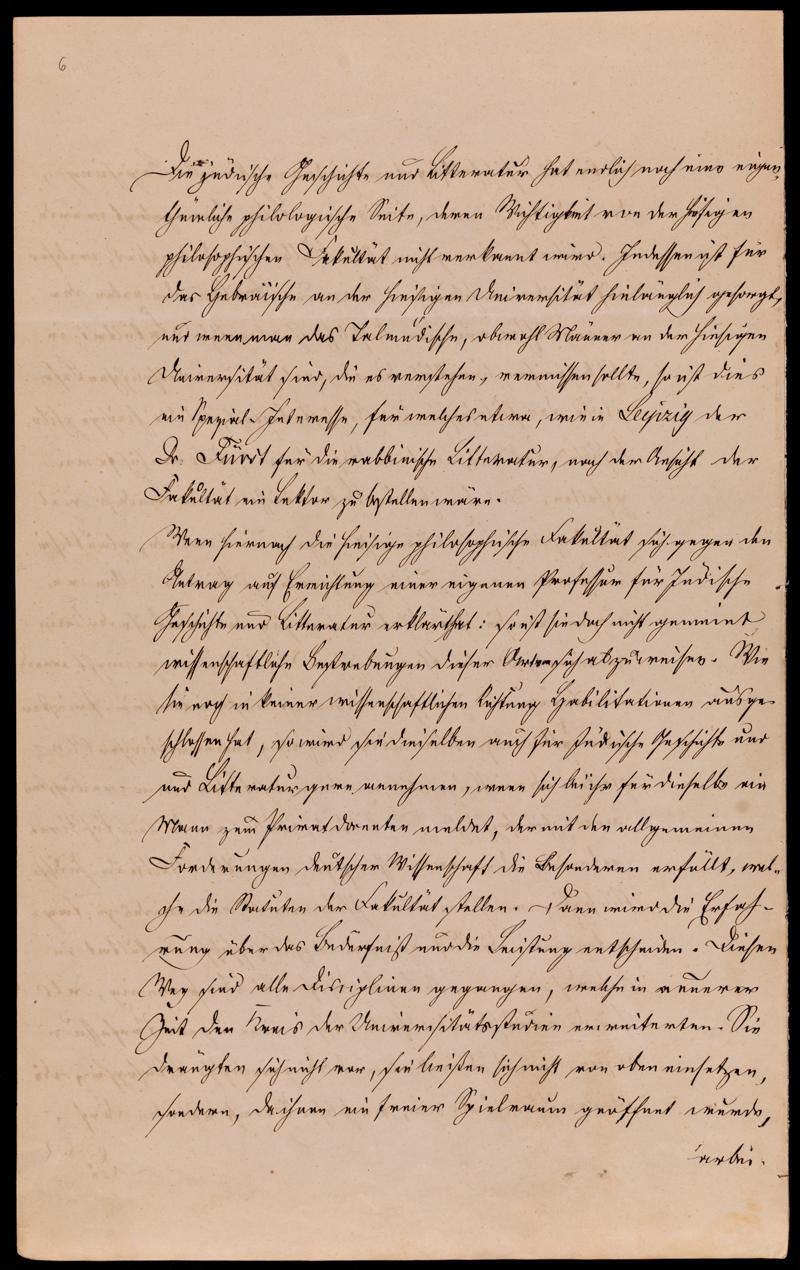 6
Die jüdische Geschichte und Litteratur hat endlich noch eine eigen-
thümliche philologische Seite, deren Wichtigkeit von der hiesigen
philosophischen Fakultät nicht verkannt wird. Indessen ist für
das Hebräische an der hiesigen Universität hinlänglich gesorgt,
und wenn man das Talmudische, obwohl Männer an der hiesigen
Universität sind, die es verstehen, vermissen sollte, so ist dies
ein Spezial-Interesse, für welches etwa, wie in Leipzig der
Dr. Fürst für die rabbinische Litteratur, nach der Ansicht der
Fakultät ein Lektor zu bestellen wäre.
Wenn hiernach die hiesige philosophische Fakultät sich gegen den
Antrag auf Errichtung einer eigenen Professur für Jüdische
Geschichte und Litteratur erklärt hat: so ist sie doch nicht gemeint
wissenschaftliche Bestrebungen dieser Art von sich abzuweisen. Wie
sie noch in keiner wissenschaftlichen Richtung Habilitationen ausge-
schlossen hat, so wird sie dieselben auch für Jüdische Geschichte und
und Litteratur gern annehmen, wenn sich bei ihr für dieselbe ein
Mann zum Privatdocenten meldet, der mit den allgemeinen
Forderungen deutscher Wissenschaft die Besonderen erfüllt, wel-
che die Statuten der Fakultät stellen. Dann wird die Erfah-
rung über das Bedürfniß und die Leistung entscheiden. Diesen
Weg sind alle Disciplinen gegangen, welche in neuerer
Zeit den Kreis der Universitätsstudien erweiterten. Sie
drängten sich nicht vor, sie ließen sich nicht von oben einsetzen,
sondern, da ihnen ein freier Spielraum geöffnet wurde,
arbei-